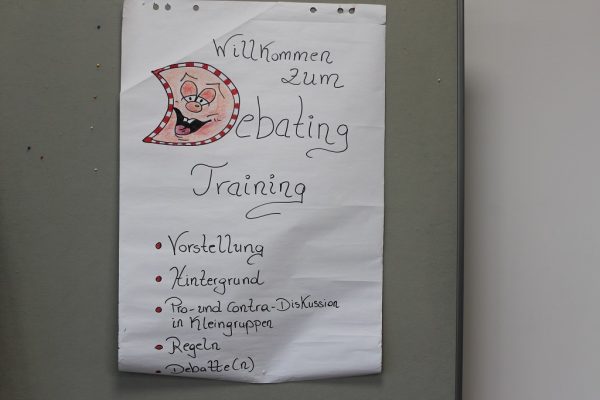 Willkommen
zum
Debating
Training
• Vorstellung
• Hintergrund
• Pro- und Contra-Diskussion
in Kleingruppen
• Regeln
• Debatte(n)